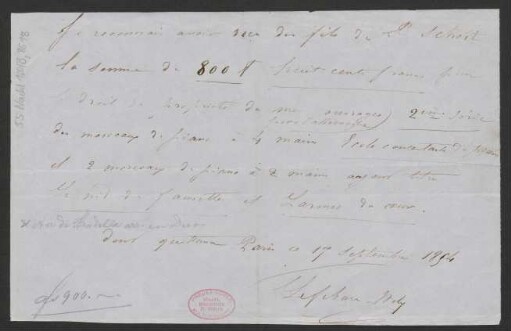 Je reconnais avoir reçu des fils de B. Schott
la somme de 800 f huit cents francs pour
le droit de propriété de mes ouvrages 2me Série
des morceaux de piano à 4 mains Ecole concertante de piano
et 2 morceaux de piano à 2 mains ayant titre
Le nid de fauvette et Larmes du cœur.
dont quittance Paris ce 17 Septembre 1854
Lefébure Wely
fs 900.—